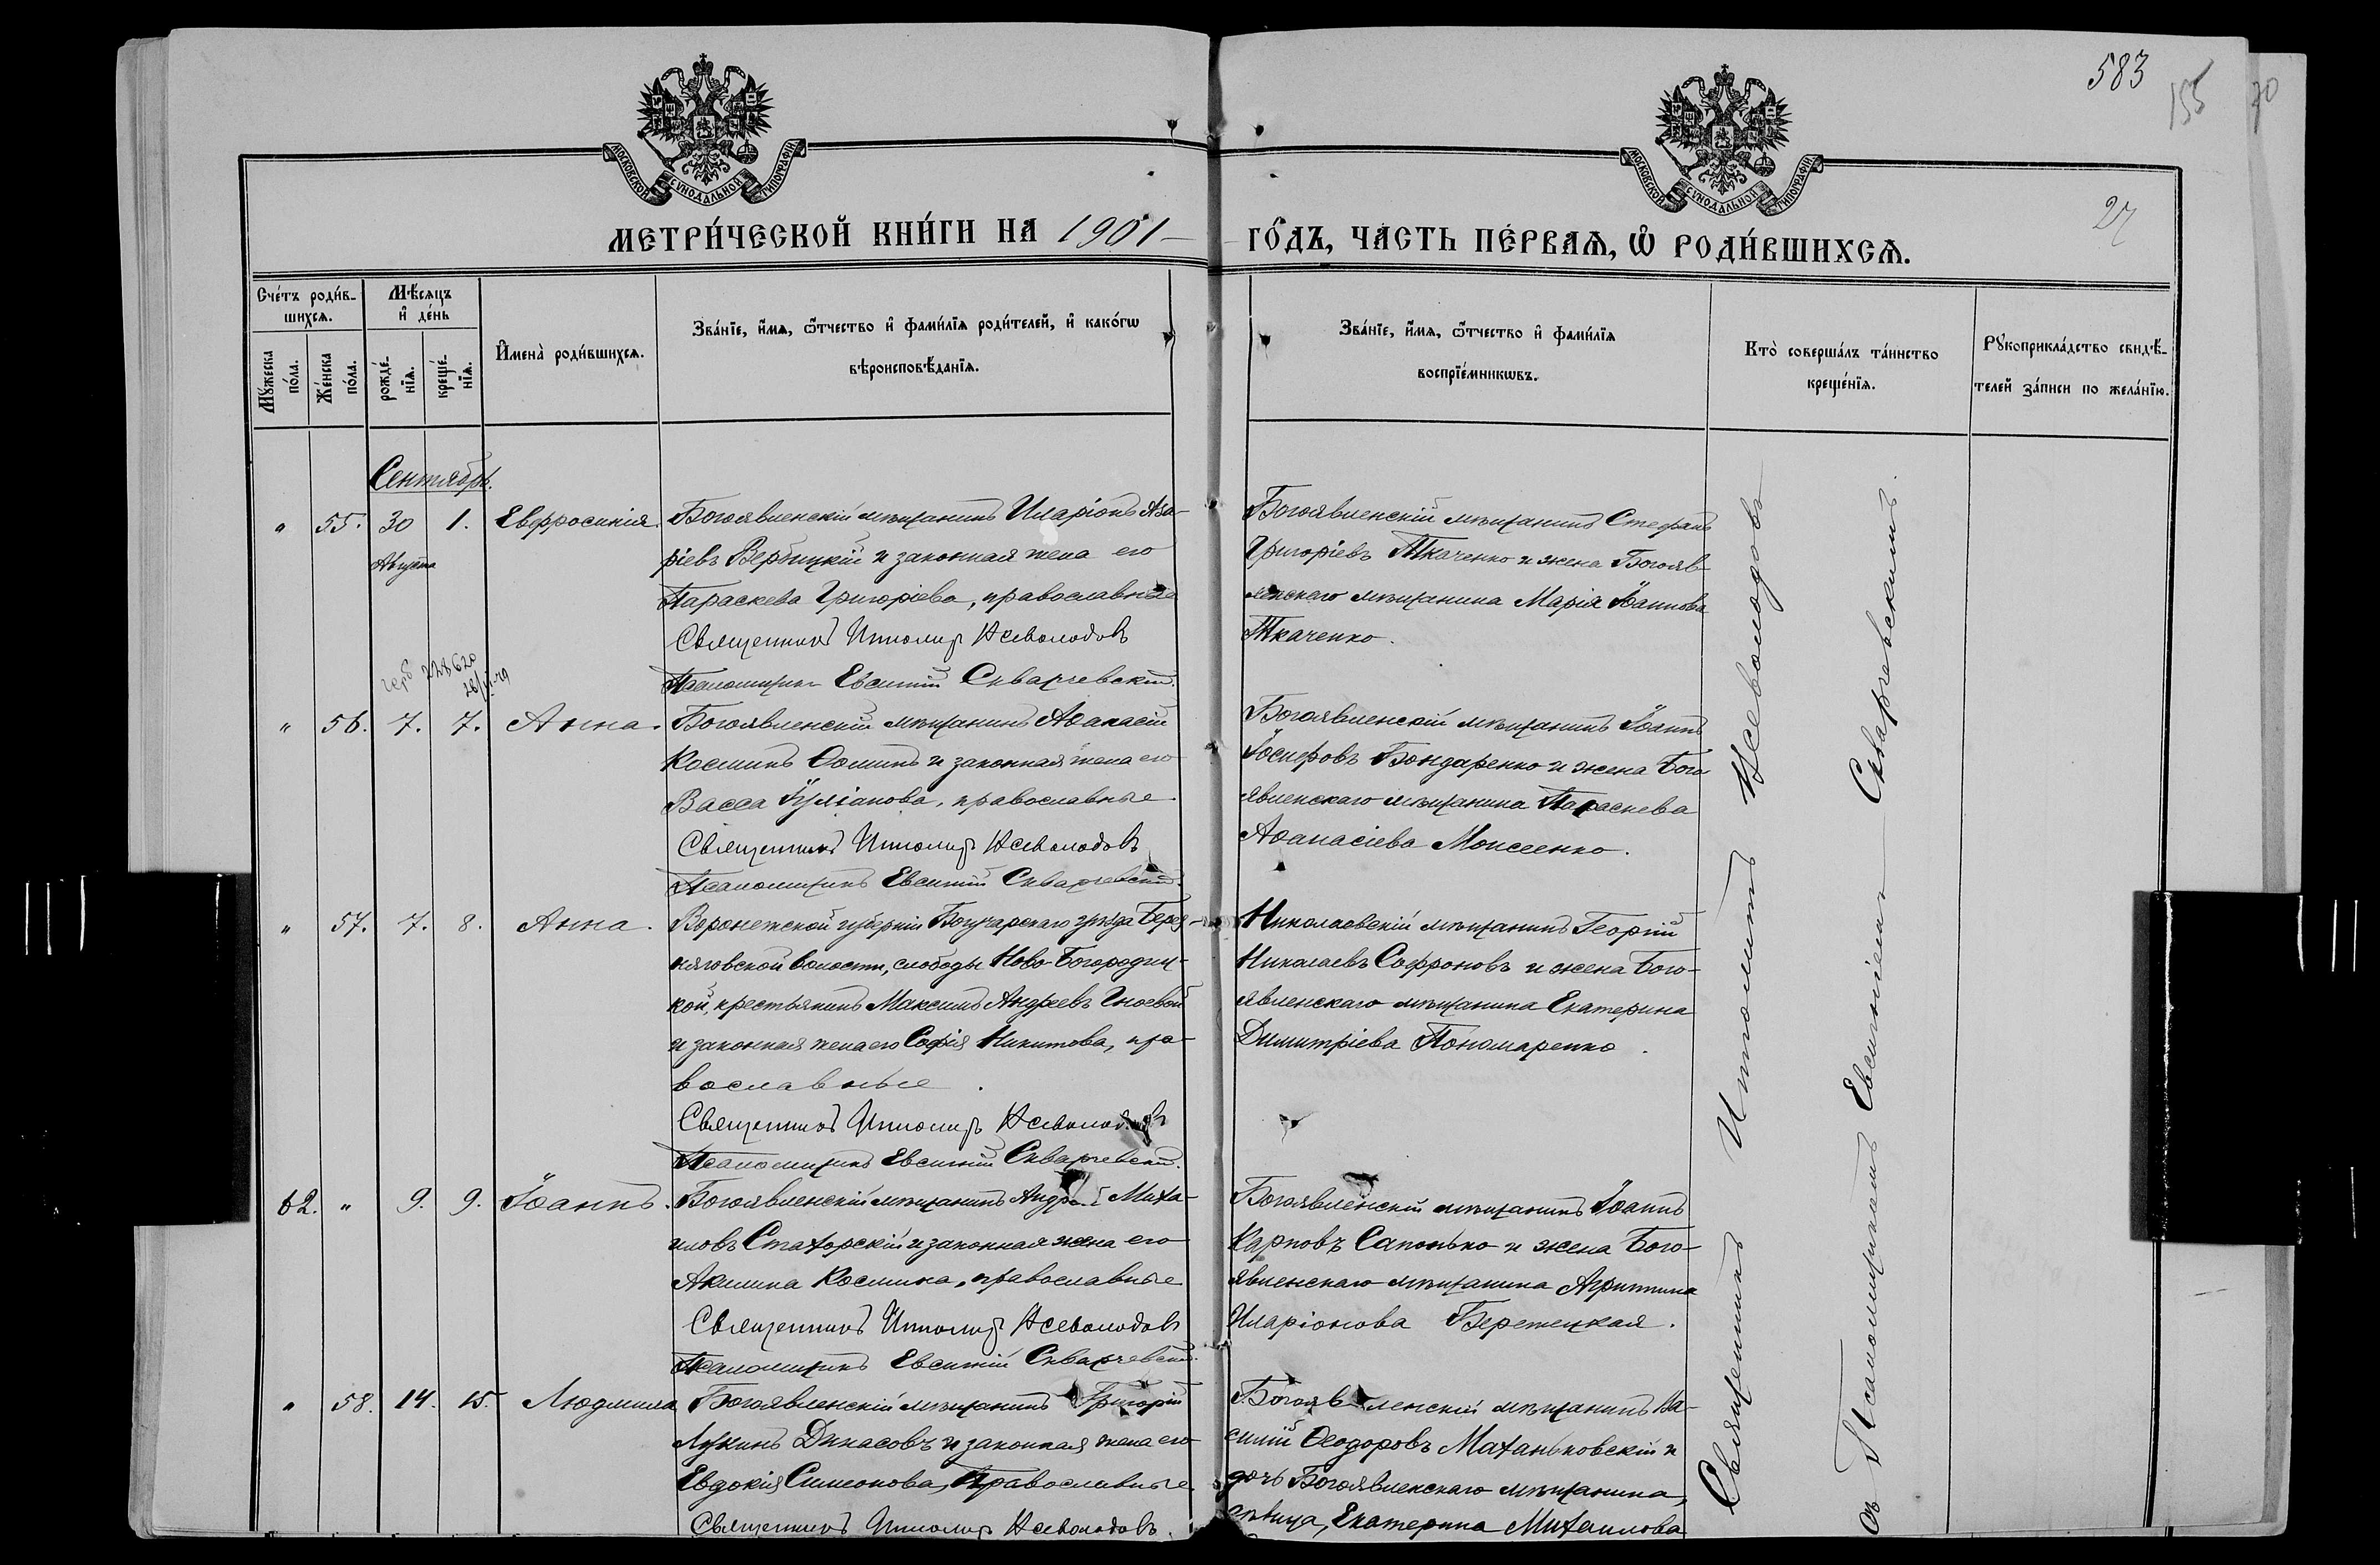 583
155
70
27
МОСКОВСКОЙ СѴНОДАЛЬНОЙ ТИПОГРАФІИ
МОСКОВСКОЙ СѴНОДАЛЬНОЙ ТИПОГРАФІИ
МЕТРИ́ЧЕСКОЙ КНИ́ГИ НА 1901
ГО́ДЪ, ЧА́СТЬ ПЕ́РВАѦ, Ѡ҆ РОДИ́ВШИХСѦ.
Сче́тъ роди́в-
шихсѧ.
Мꙋ́жеска
по́ла.
Же́нска
по́ла.
Мѣ́сѧцъ
и҆ де́нь
рожде́-
нїѧ.
креще́-
нїѧ.
И҆мена̀ роди́вшихсѧ.
Зва́нїе, и҆́мѧ, ѻ҆́тчество и҆ фами́лїѧ роди́телей, и҆ како́гѡ
вѣроисповѣ́данїѧ.
Зва́нїе, и҆́мѧ, ѻ҆́тчество и҆ фами́лїѧ
воспрїе́мникѡвъ.
Кто̀ соверша́лъ та́инство
креще́нїѧ.
Рꙋкоприкла́дство свидѣ́-
телей за́писи по жела́нїю.
Сентябрь.
" 55. 30 1. Евфросинія.
Августа
Богоявленскій мѣщанинъ Иларіонъ Аза-
ріевъ Вербицкій и законная жена его
Параскева Григоріева, православные
Священникъ Ипполитъ Всеволодовъ
Псаломщикъ Евсигній Скваржевскій.
Богоявленскій мѣщанинъ Стефанъ
Григоріевъ Ткаченко и жена Богояв-
ленскаго мѣщанина Марія Іоаннова
Ткаченко.
228620
" 56. 7. 7. Анна.
Богоявленскій мѣщанинъ Аѳанасій
Косминъ Ѳоминъ и законная жена его
Васса Іуліанова, православные.
Священникъ Ипполитъ Всеволодовъ
Псаломщикъ Евсигній Скваржевскій.
Богоявленскій мѣщанинъ Іоаннъ
Іосифовъ Бондаренко и жена Бого-
явленскаго мѣщанина Параскева
Аѳанасіева Моисеенко.
" 57. 7. 8. Анна.
Воронежской губерніи Богучарскаго уѣзда Берез-
няговской волости, слободы Ново-Богородиц-
кой, крестьянинъ Максимъ Андреевъ Гноевой
и законная жена его Софія Никитова, пра-
вославные.
Священникъ Ипполитъ Всеволодовъ
Псаломщикъ Евсигній Скваржевскій.
Николаевскій мѣщанинъ Георгій
Николаевъ Софроновъ и жена Бого-
явленскаго мѣщанина Екатерина
Димитріева Пономаренко.
62. " 9. 9. Іоаннъ.
Богоявленскій мѣщанинъ Андрей Миха-
иловъ Стахорскій и законная жена его
Акилина Космина, православные
Священникъ Ипполитъ Всеволодовъ
Псаломщикъ Евсигній Скваржевскій.
Богоявленскій мѣщанинъ Іоаннъ
Карповъ Сапонько и жена Бого-
явленскаго мѣщанина Агриппина
Иларіонова Бережецкая.
" 58. 14. 15. Людмила
Богоявленскій мѣщанинъ Григорій
Лукинъ Дикасовъ и законная жена его
Евдокія Симеонова, Православные.
Священникъ Ипполитъ Всеволодовъ.
Богоявленскій мѣщанинъ Ва-
силій Ѳеодоровъ Маханьковскій и
дочь Богоявленскаго мѣщанина,
дѣвица, Екатерина Михаилова
Священникъ Ипполитъ Всеволодовъ
съ Псаломщикомъ Евсигніемъ Скваржевскимъ.